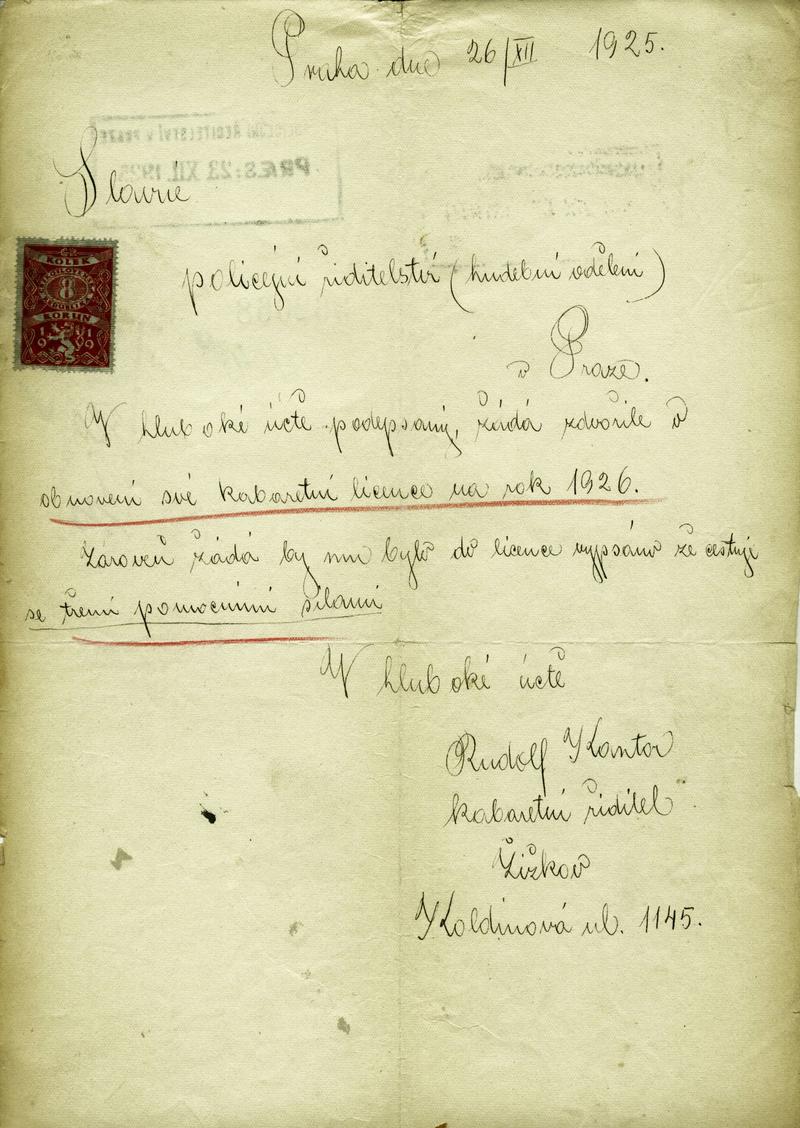 Praha dne 26/XII 1925.
Slavné
policejní řiditelství (hudební oděleni)
v Praze.
V hluboké úctě podepsaný, žádá zdvořile o
obnovení své kabaretní licence na rok 1926.
Zároveň žádá by mu bylo do licence vypsáno že cestuje
se třemi pomocnimi silami
V hluboké úctě
Rudolf Kantor
kabaretní řiditel
Žižkov
Koldinová ul. 1145.
KOLEK
8
KORUN
1919
ŘEDITELSTVÍ V PRAZE
PRÆS: 23 XII. 192